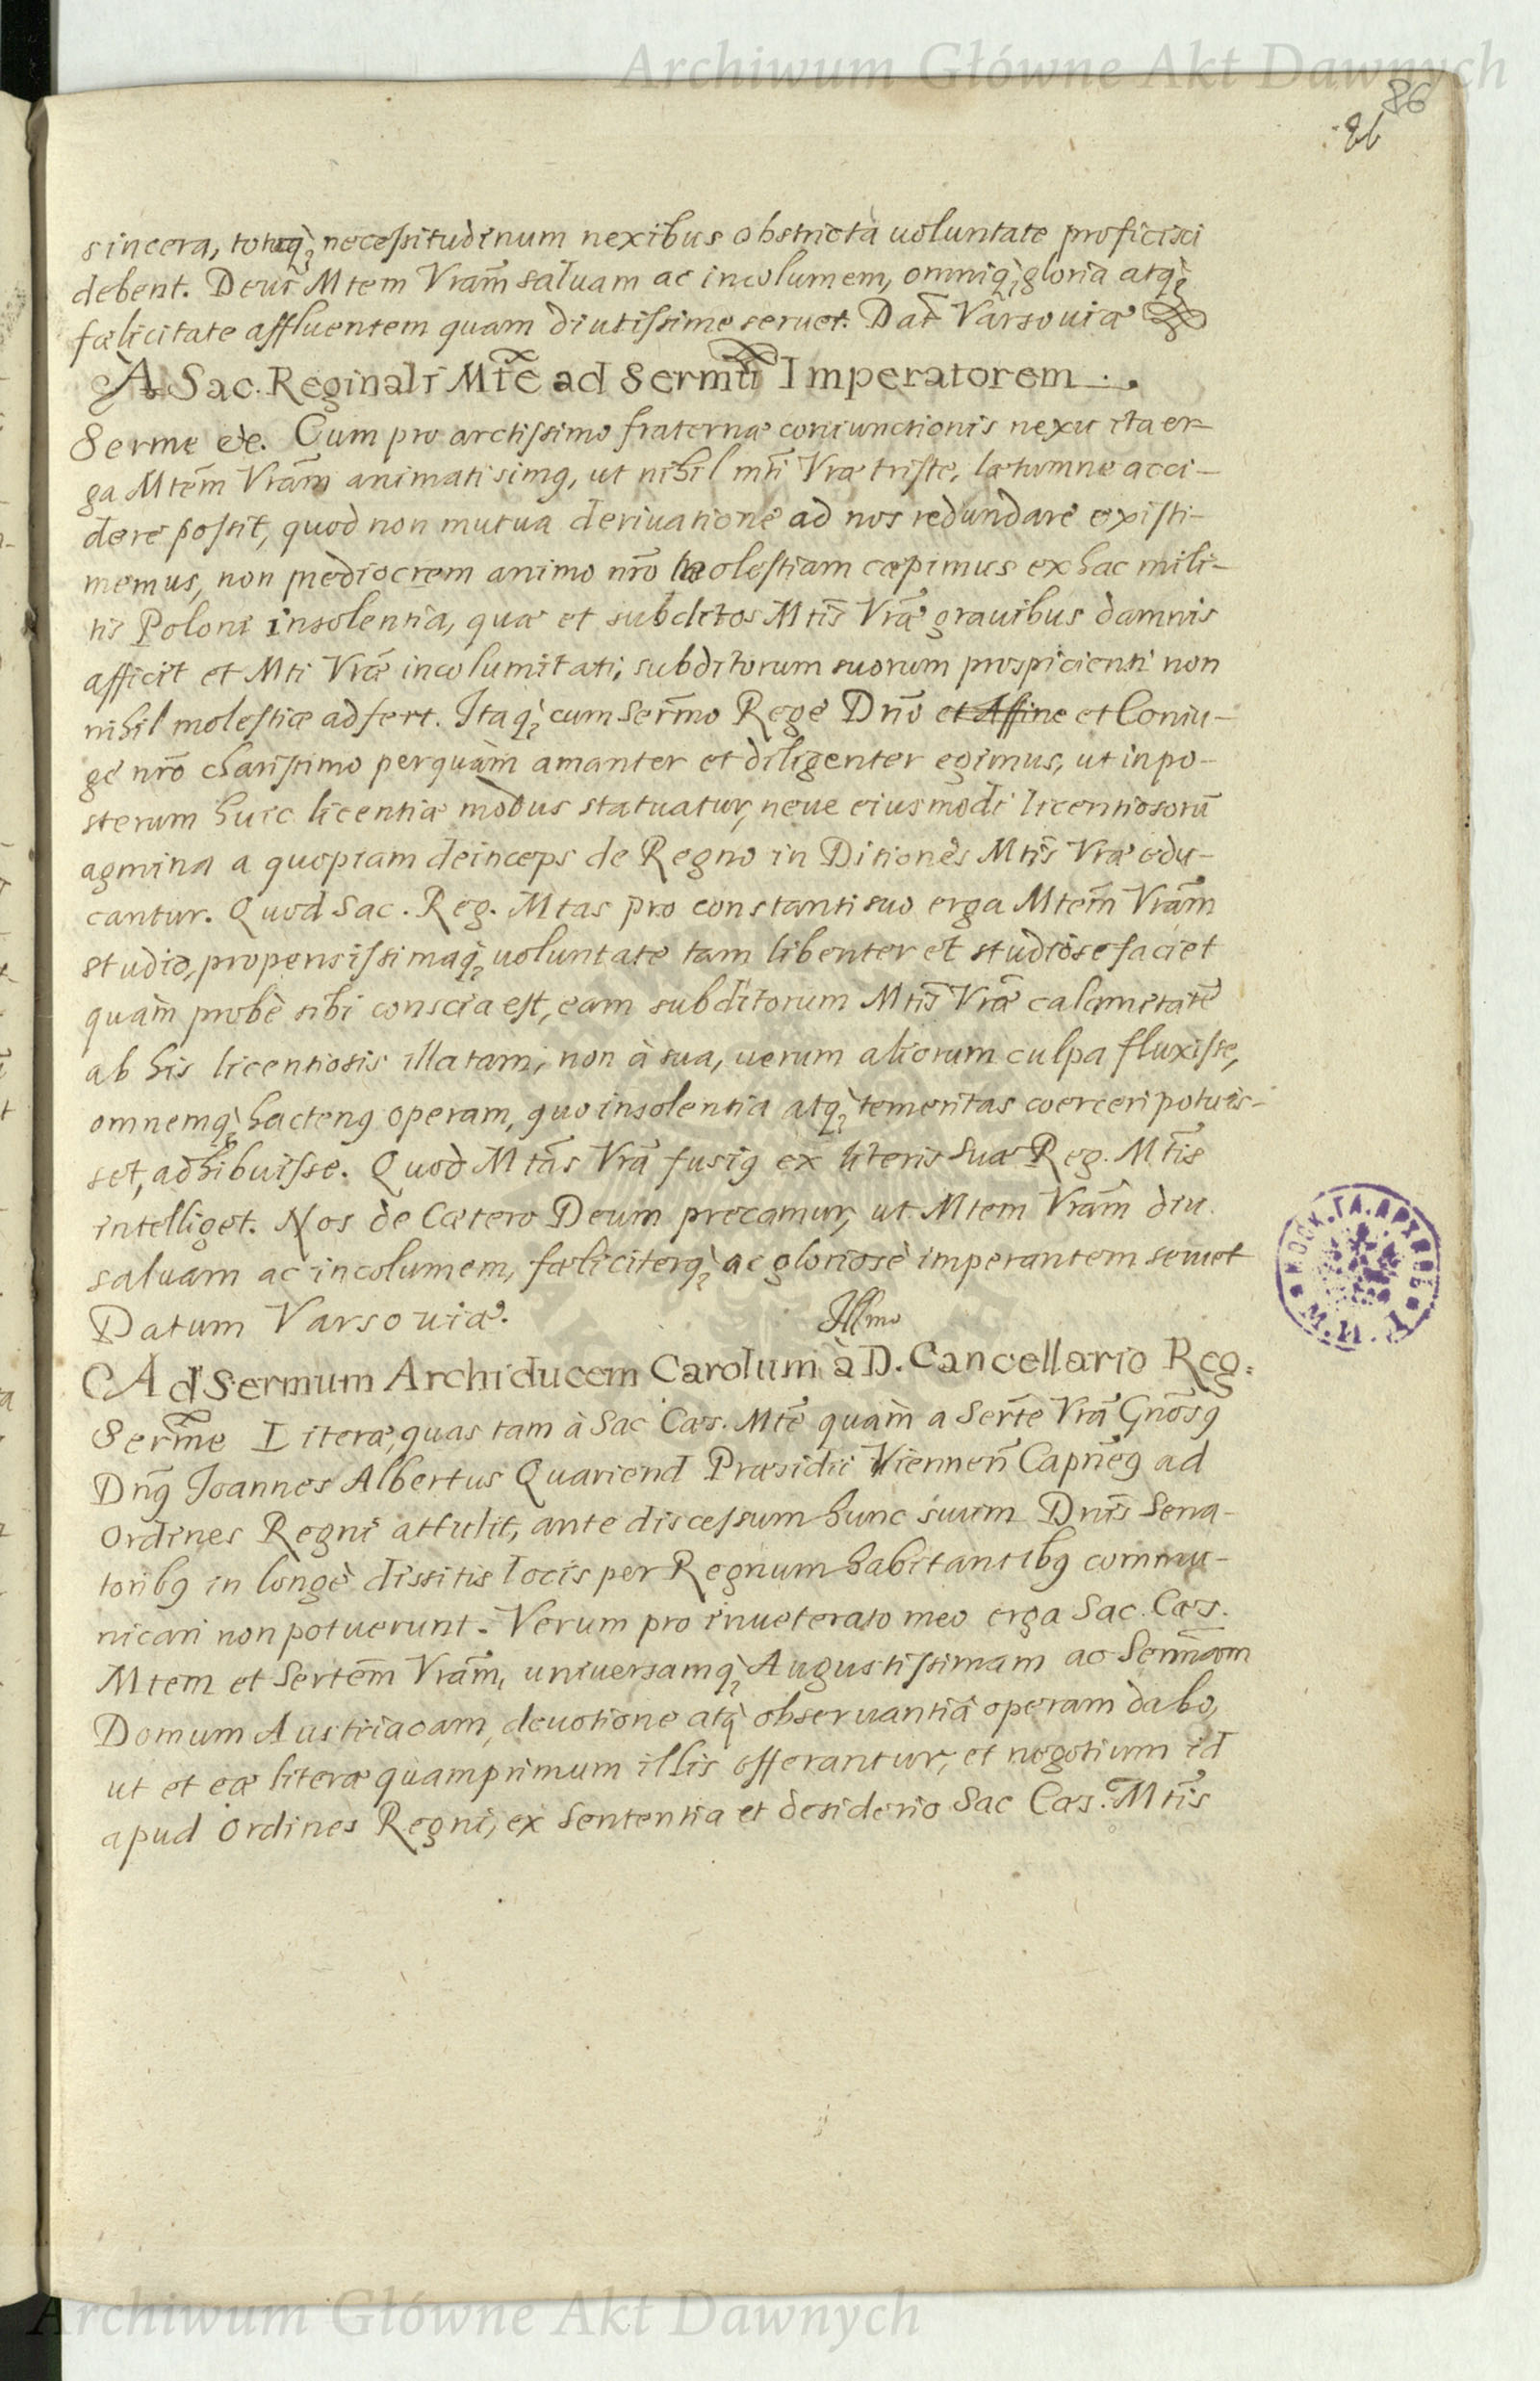 Archiwum Główne Akt Dawnych
86
86
sincera, totq̀ꝫ necessitudinum nexibus obstrictà uoluntate proficisci
debent. Deus Mtem Vram̃ saluam ac incolumem, omniq̀ꝫ gloria atq̀ꝫ
fœlicitate affluentem quam diutissime seruet. Dat̃ Varsouiæ
A Sac. Reginali Mt̃e ad Serm̃u Imperatorem.
Serme etc. Cum pro arctissimo fraternæ coniunctionis nexu ita er-
ga Mtem̃ Vram̃ animati simꝰ, ut nihil mt̃i Vræ triste, lætumne acci-
dere possit, quod non mutua deriuatione ad nos redundare existi-
memus, non mediocrem animo nr̃o molestiam cæpimus ex hac mili-
tis Poloni insolentia, quæ et subditos Mtis̃ Vræ̃ grauibus damnis
afficit et Mti Vræ̃ incolumitati, subditorum suorum prospicienti non
nihil molestiæ adfert. Itaq̀ꝫ cum Serm̃o Rege Dnõ et Affine et Coniu-
ge nr̃o charissimo perquàm amanter et diligenter egimus, ut in po-
sterum huic licentiæ modus statuatur, neue eiusmodi licentiosorũ
agmina a quopiam deinceps de Regno in Ditiones Mtis̃ Vræ edu-
cantur. Quod Sac. Reg. Mtas pro constanti suo erga Mtem̃ Vram̃
studio, propensissimaq̀ꝫ uoluntate tam libenter et studiose faciet
quàm probè sibi conscia est, eam subditorum Mtis̃ Vræ̃ calamitatẽ
ab his licentiosis illatam, non à sua, uerum aliorum culpa fluxisse,
omnemq̀ꝫ hactenꝰ operam, quo insolentia atq̀ꝫ temeritas coerceri potuis-
set, adhibuisse. Quod Mtas̃ Vrã fusiꝰ ex literis Suæ Reg. Mtis̃
intelliget. Nos de Cætero Deum precamur, ut Mtem Vram̃ diu
saluam ac incolumem, fœliciterq̀ꝫ ac gloriosè imperantem seruet
Datum Varsouiæ.
Illmo
Ad Sermum Archiducem Carolum à D. Cancellario Reg.
Serm̃e Literæ, quas tam à Sac Cæs. Mtẽ quàm a Sert̃e Vrã Gnõsꝰ
Dnꝰ̃ Joannes Albertus Quariend Præsidii Viennen̄ Capnẽꝰ ad
Ordines Regni attulit, ante discessum hunc suum Dnis̃ Sena-
toribꝰ in longè dissitis locis per Regnum habitantibꝰ commu-
nicari non potuerunt. Verum pro inueterato meo erga Sac. Cæs.
Mtem et Sertem̃ Vram̃, uniuersamq̀ꝫ Augustissimam ac Serm̃am
Domum Austriacam, deuotione atq̀ꝫ obseruantiâ operam dabo,
ut et eæ literæ quamprimum illis offerantur, et negotium id
apud Ordines Regni, ex Sententia et desiderio Sac Cæs. Mtis̃
Archiwum Główne Akt Dawnych